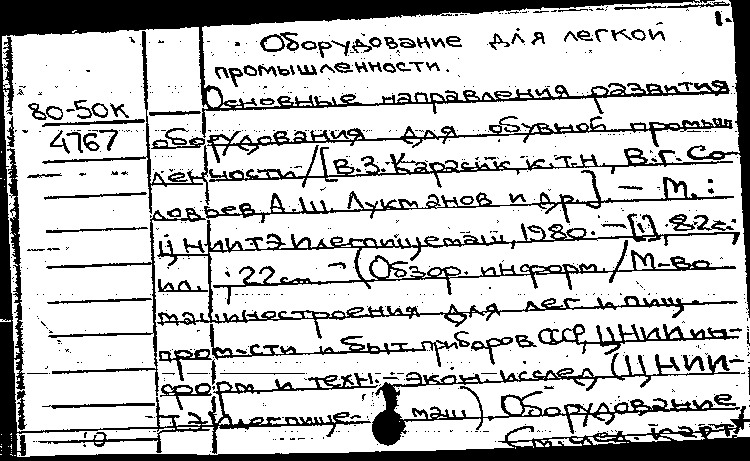 1.
Оборудование для легкой
промышленности.
80-50к
4767
Основные направления развития
оборудования для обувной промыш
ленности /[В.З. Карасик, к.т.н., В.Г. Со-
ловьев, А.Ш. Лукманов и др.]. — М.:
ЦНИИТЭИлегпищемаш, 1980. — [1], 82с.;
ил. ; 22см. — (Обзор. информ. / М-во
машиностроения для лег. и пищ.
пром-сти и быт. приборов СССР, ЦНИИ ин-
форм. и техн.-экон. исслед. (ЦНИИ-
ТЭИлегпище- маш). Оборудование
См. след. карт
10